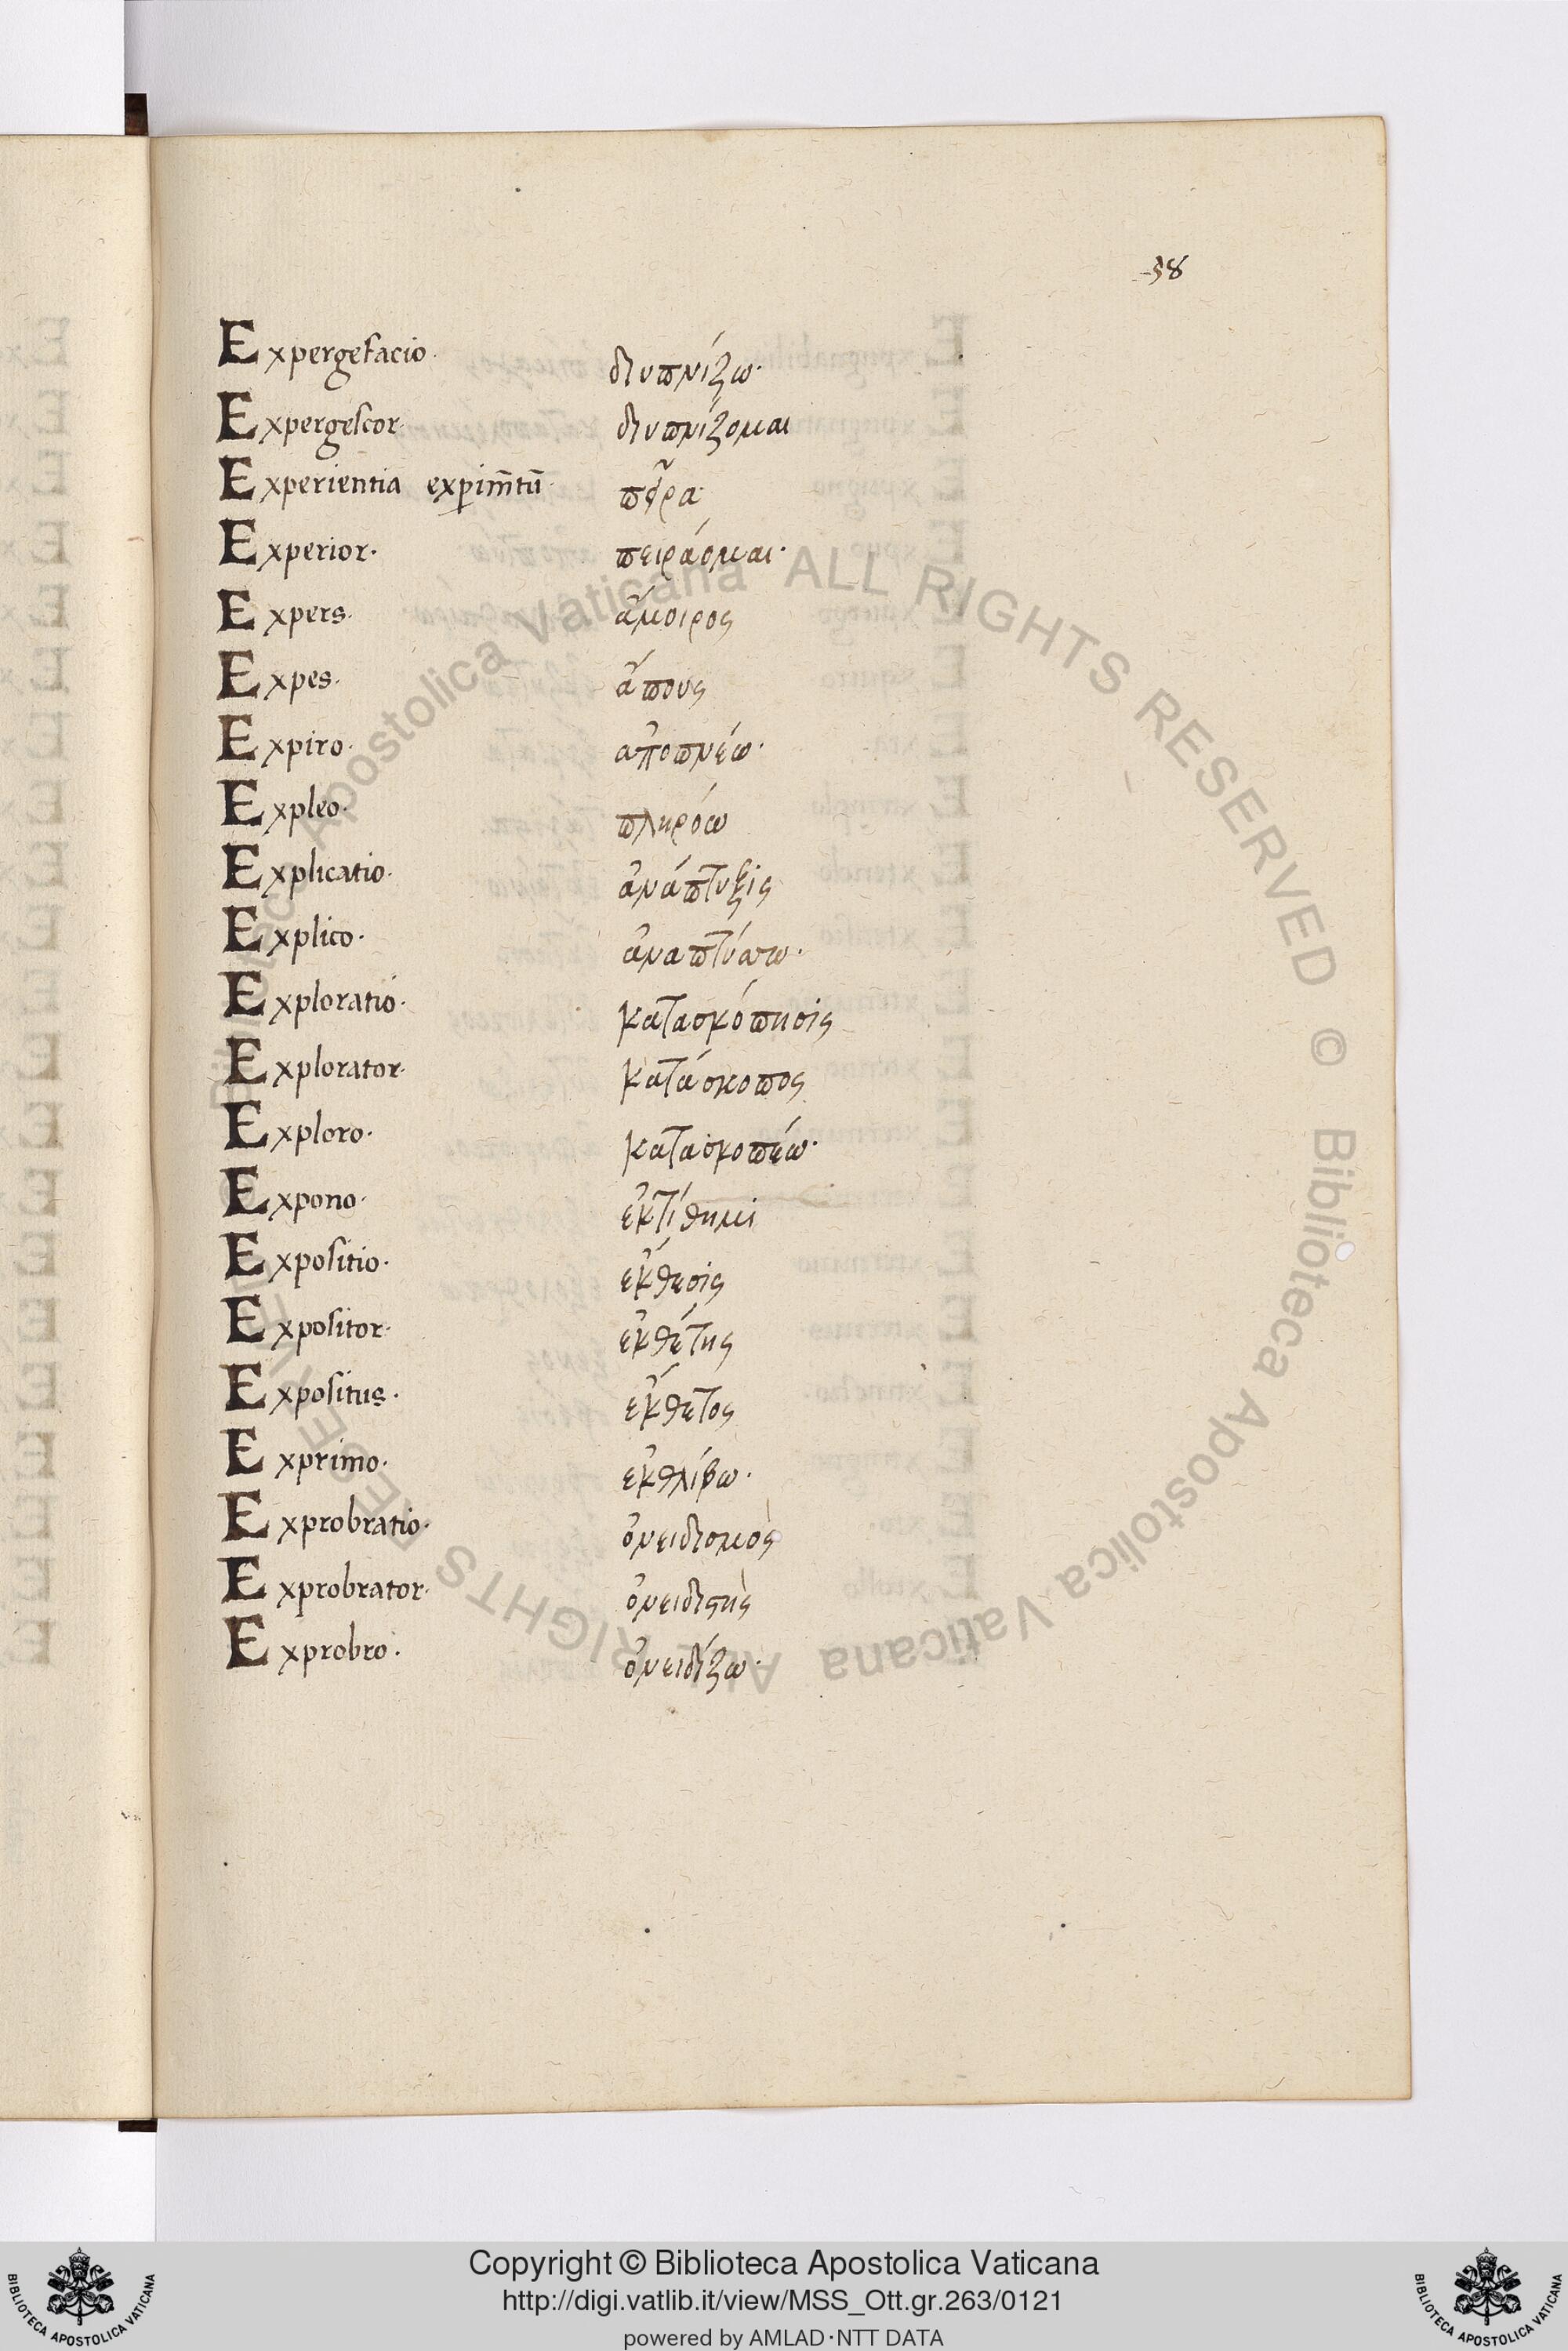 58
Expergefacio· διυπνίζω·
Expergeſcor· διυπνίζομαι
Experientia exꝑim̄tū· πεῖρα·
Experior· πειράομαι·
Expers· ἄμοιρος
Expes· ἄπους
Expiro· αποπνέω·
Expleo· πληρόω
Explicatio· ἀνάπτυξις
Explico· ἀναπτύσσω·
Exploratio· κατασκόπησις
Explorator· κατάσκοπος
Exploro· κατασκοπέω·
Expono· ἐκτίθημι
Expoſitio· ἔκθεσις
Expoſitor· ἐκθέτης
Expoſitus· ἔκθετος
Exprimo· ἐκθλίβω·
Exprobratio· ὀνειδισμὸς
Exprobrator· ὀνειδιϛὴς
Exprobro· ὀνειδίζω·
© Biblioteca Apostolica Vaticana ALL RIGHTS RESERVED
© Biblioteca Apostolica Vaticana ALL RIGHTS RESERVED
Copyright © Biblioteca Apostolica Vaticana
http://digi.vatlib.it/view/MSS_Ott.gr.263/0121
powered by AMLAD·NTT DATA
BIBLIOTECA APOSTOLICA VATICANA
BIBLIOTECA APOSTOLICA VATICANA